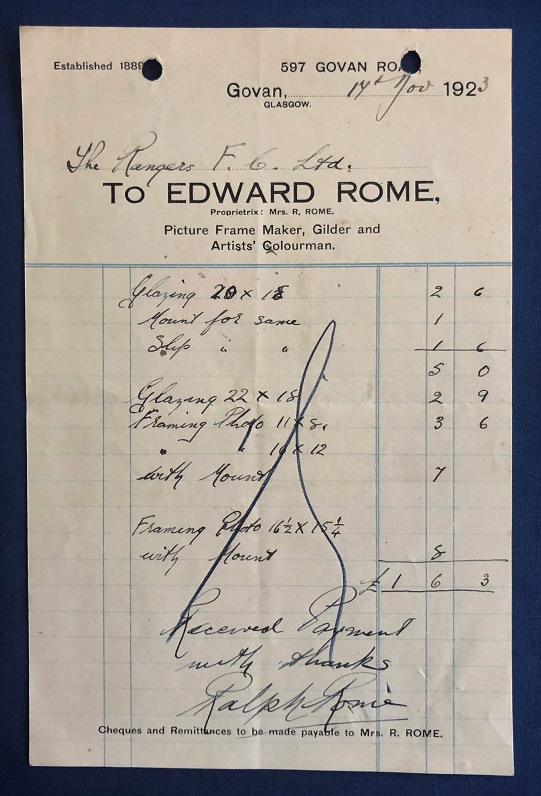 Established 1889
597 GOVAN ROAD
Govan, 14th Nov 1923
GLASGOW.
The Rangers F. C. Ltd.
To EDWARD ROME,
Proprietrix: Mrs. R. ROME.
Picture Frame Maker, Gilder and
Artists' Colourman.
Glazing 20 x 18 2 6
Mount for same 1
Slip " " 1 6
5 0
Glazing 22 x 18 2 9
Framing Photo 11 x 8. 3 6
" " 16 x 12
with Mount 7
Framing Photo 16½ x 15¼
with Mount 8
£1 6 3
Received Payment
with thanks
Ralph Rome
Cheques and Remittances to be made payable to Mrs. R. ROME.